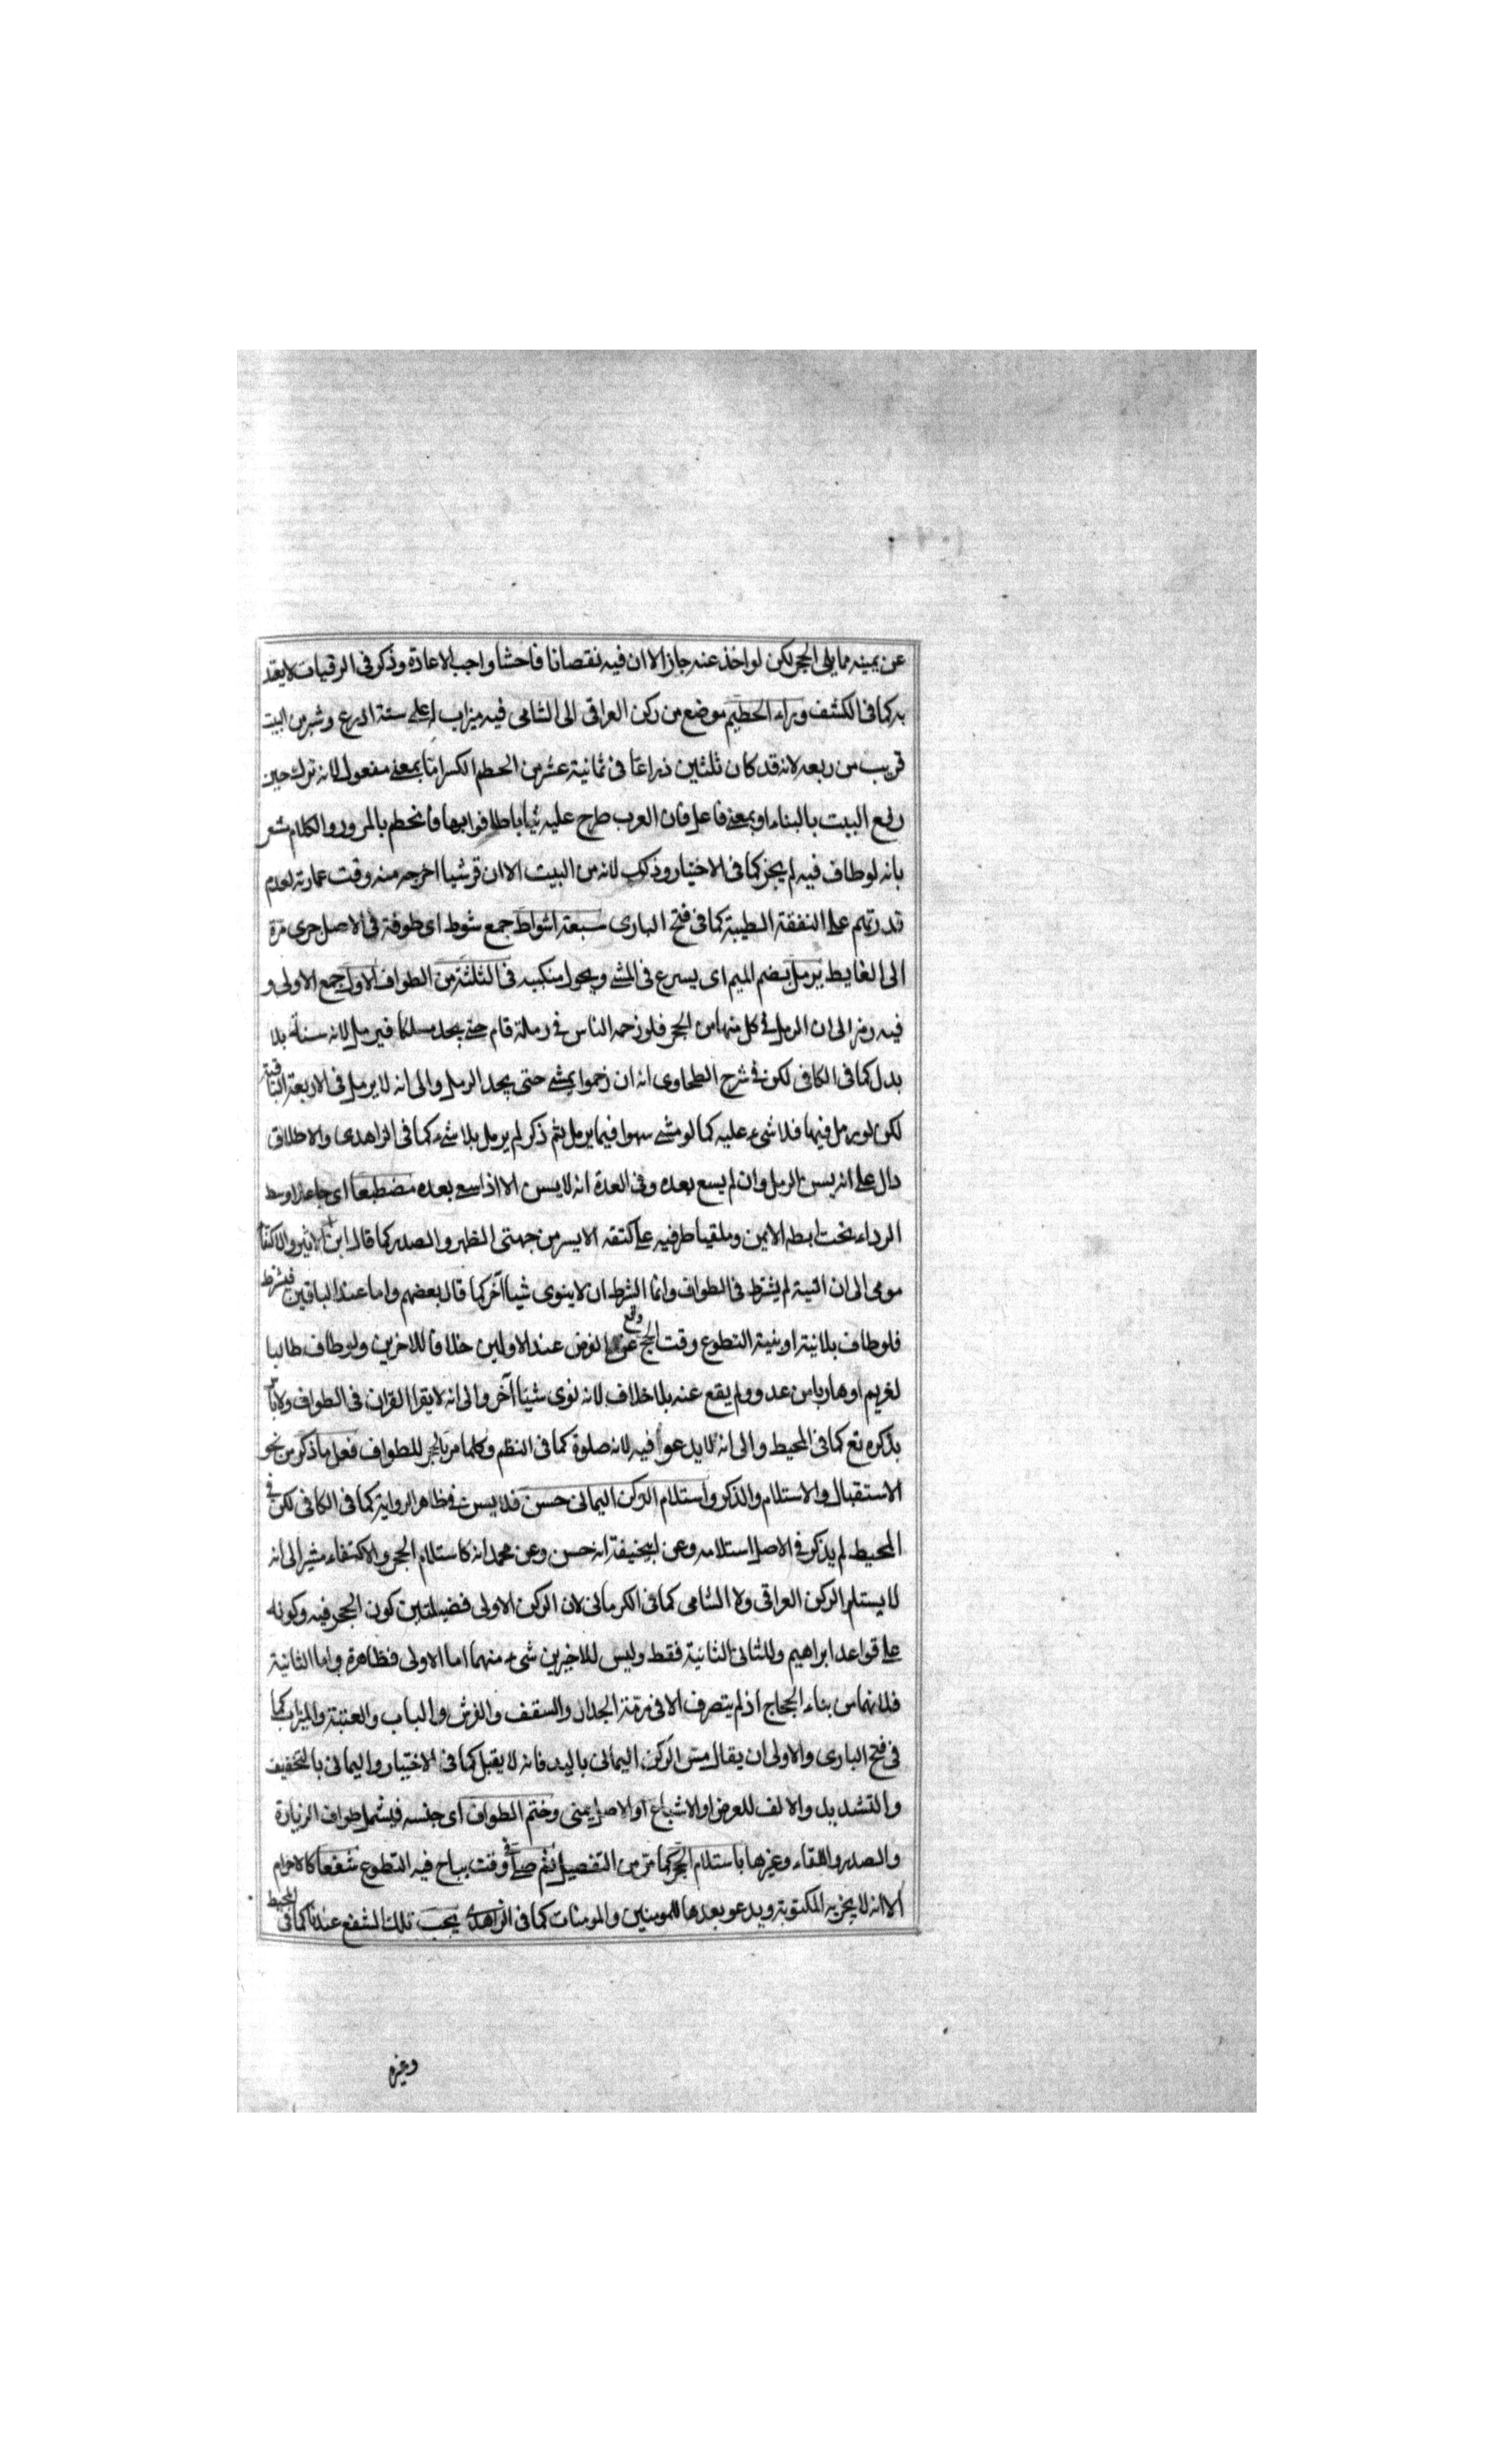 عن يمينه مما يلى الحجر لكن لو اخذ عنه جاز الا ان فيه نقصانا فاحشا واجب الاعادة وذكر فى الرقيات لا يعتد
به كما فى الكشف وراء الحطيم موضع من ركن العراقى الى الشامى فيه ميزاب له على ستة اذرع وشبر من البيت
قريب من ربعه لانه قد كان ثلثين ذراعا فى ثمانية عشر من الحطم الكسر اما بمعنى مفعول لانه ترك حين
رفع البيت بالبناء او بمعنى فاعل فان العرب طرح عليه ثيابا طافوا بها فانحطم بالمرور والكلام مشعر
بانه لو طاف فيه لم يجز كما فى الاختيار وذلك لانه من البيت الا ان قريشا اخرجه منه وقت عمارته لعدم
قدرتهم على النفقة الطيبة كما فى فتح البارى سبعة اشواط جمع شوط اى طوفة فى الاصل جرى مرة
الى الغايط يرمل بضم الميم اى يسرع فى المشى ويحول منكبيه فى الثلثة من الطواف الاول جمع الاولى و
فيه رمز الى ان الرمل فى كل منها من الحجر فلو زحمه الناس فى رمله قام حتى يجد مسلكا فيرمل لانه سنة بلا
بدل كما فى الكافى لكن فى شرح الطحاوى انه ان زحموا يمشى حتى يجد الرمل والى انه لا يرمل فى الاربعة الباقية
لكن لو رمل فيها فلا شىء عليه كما لو مشى سهوا فيما يرمل ثم ذكر لم يرمل بلا شىء كما فى الزاهدى والاطلاق
دال على انه يسن الرمل وان لم يسع بعده وفى العدة انه لا يسن الا اذا سعى بعده مضطبعا اى جاعلا وسط
الرداء تحت ابطه الايمن وملقيا طرفيه على كتفه الايسر من جهتى الظهر والصدر كما قال ابن الاثير والاكتفاء
مومى الى ان النية لم يشترط فى الطواف وانما الشرط ان لا ينوى شيا آخر كما قال بعضهم واما عند الباقين فيشترط
فلو طاف بلا نية او بنية التطوع وقت الحج وقع عن الفرض عند الاولين خلافا للاخرين ولو طاف طالبا
لغريم او هاربا من عدو ولم يقع عنه بلا خلاف لانه نوى شيئا آخر والى انه لا يقرا القران فى الطواف ولا باس
بذكره تع كما فى المحيط والى انه لا يدعوا فيه لانه صلوة كما فى النظم وكلما مر بالحجر للطواف فعل ما ذكر من نحو
الاستقبال والاستلام والذكر واستلام الركن اليمانى حسن فلا يسن فى ظاهر الرواية كما فى الكافى لكن فى
المحيط لم يذكر فى الاصل استلامه وعن ابيحنيفة انه حسن وعن محمد انه كاستلام الحجر والاكتفاء مشير الى انه
لا يستلم الركن العراقى ولا الشامى كما فى الكرمانى لان الركن الاولى فضيلتين كون الحجر فيه وكونه
على قواعد ابراهيم وللثانى الثانية فقط وليس للاخيرين شىء منهما اما الاولى فظاهرة واما الثانية
فلانهما من بناء الحجاج اذ لم يتصرف الا فى مرمة الجدار والسقف والفرش والباب والعتبة والميزاب كما
فى فتح البارى والاولى ان يقال مس الركن اليمانى باليد فانه لا يقبل كما فى الاختيار واليمانى بالتخفيف
والتشديد والالف للعوض او الاشباع او الاصل يمنى وختم الطواف اى جنسه فيشمل طواف الزيارة
والصدر واللقاء وغيرها باستلام الحجر كما مر من التفصيل ثم صلى فى وقت يباح فيه التطوع شفعا كالاحرام
الا انه لا يجزيه المكتوبة ويدعو بعدها للمومنين والمومنات كما فى الزاهدى يجب تلك الشفع عندنا كما فى المحيط
وغيره